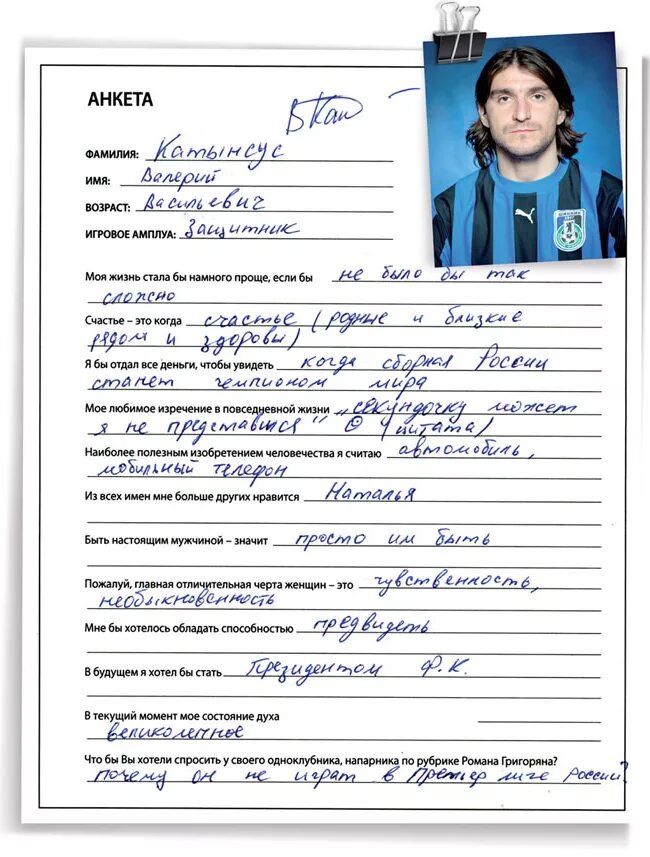 АНКЕТА
ФАМИЛИЯ: Катынсус
ИМЯ: Валерий
ВОЗРАСТ: Васильевич
ИГРОВОЕ АМПЛУА: Защитник
Моя жизнь стала бы намного проще, если бы не было бы так
сложно
Счастье – это когда счастье (родные и близкие
рядом и здоровы)
Я бы отдал все деньги, чтобы увидеть когда сборная России
станет чемпионом мира
Мое любимое изречение в повседневной жизни „секундочку может
я не представился" (цитата)
Наиболее полезным изобретением человечества я считаю автомобиль,
мобильный телефон
Из всех имен мне больше других нравится Наталья
Быть настоящим мужчиной – значит просто им быть
Пожалуй, главная отличительная черта женщин – это чувственность,
необыкновенность
Мне бы хотелось обладать способностью предвидеть
В будущем я хотел бы стать Президентом Ф.К.
В текущий момент мое состояние духа
великолепное
Что бы Вы хотели спросить у своего одноклубника, напарника по рубрике Романа Григоряна?
почему он не играет в Премьер лиге России?